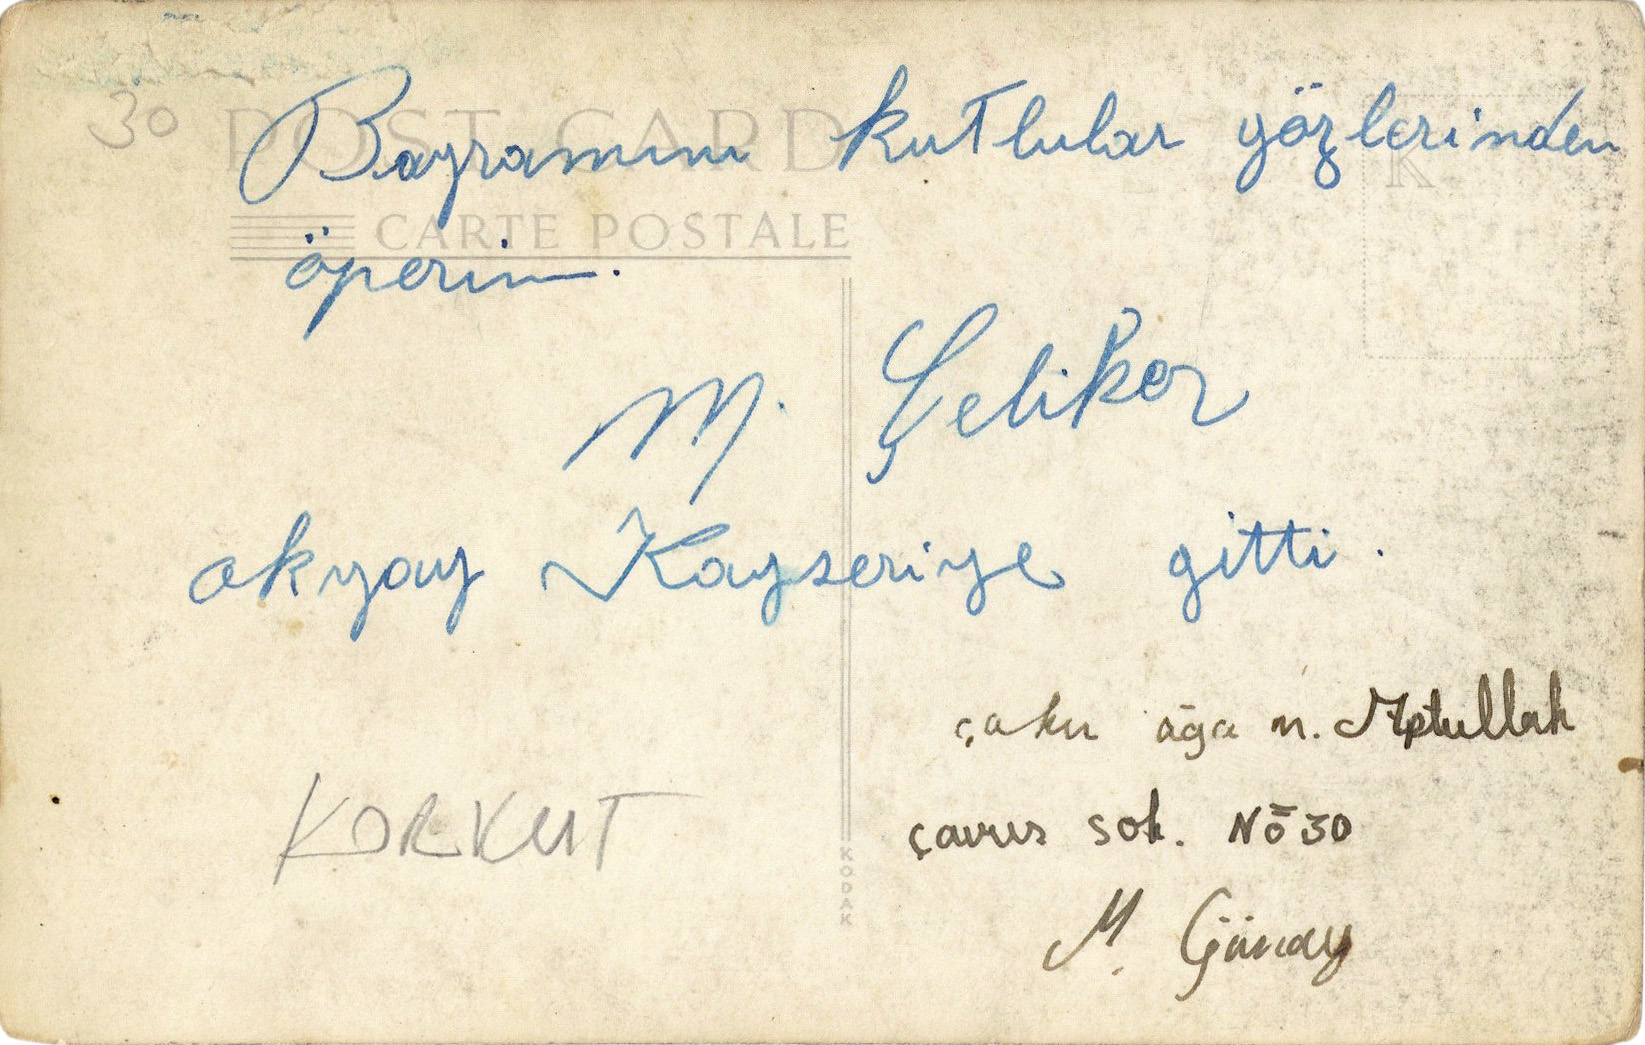 30
POST CARD
Bayramını kutlular gözlerinden
CARTE POSTALE
öperim.
K
M. Çeliker
akyay Kayseriye gitti.
çakır ağa m. Aptullah
çavus sok. Nō 30
KORKUT
KODAK
M. Günay